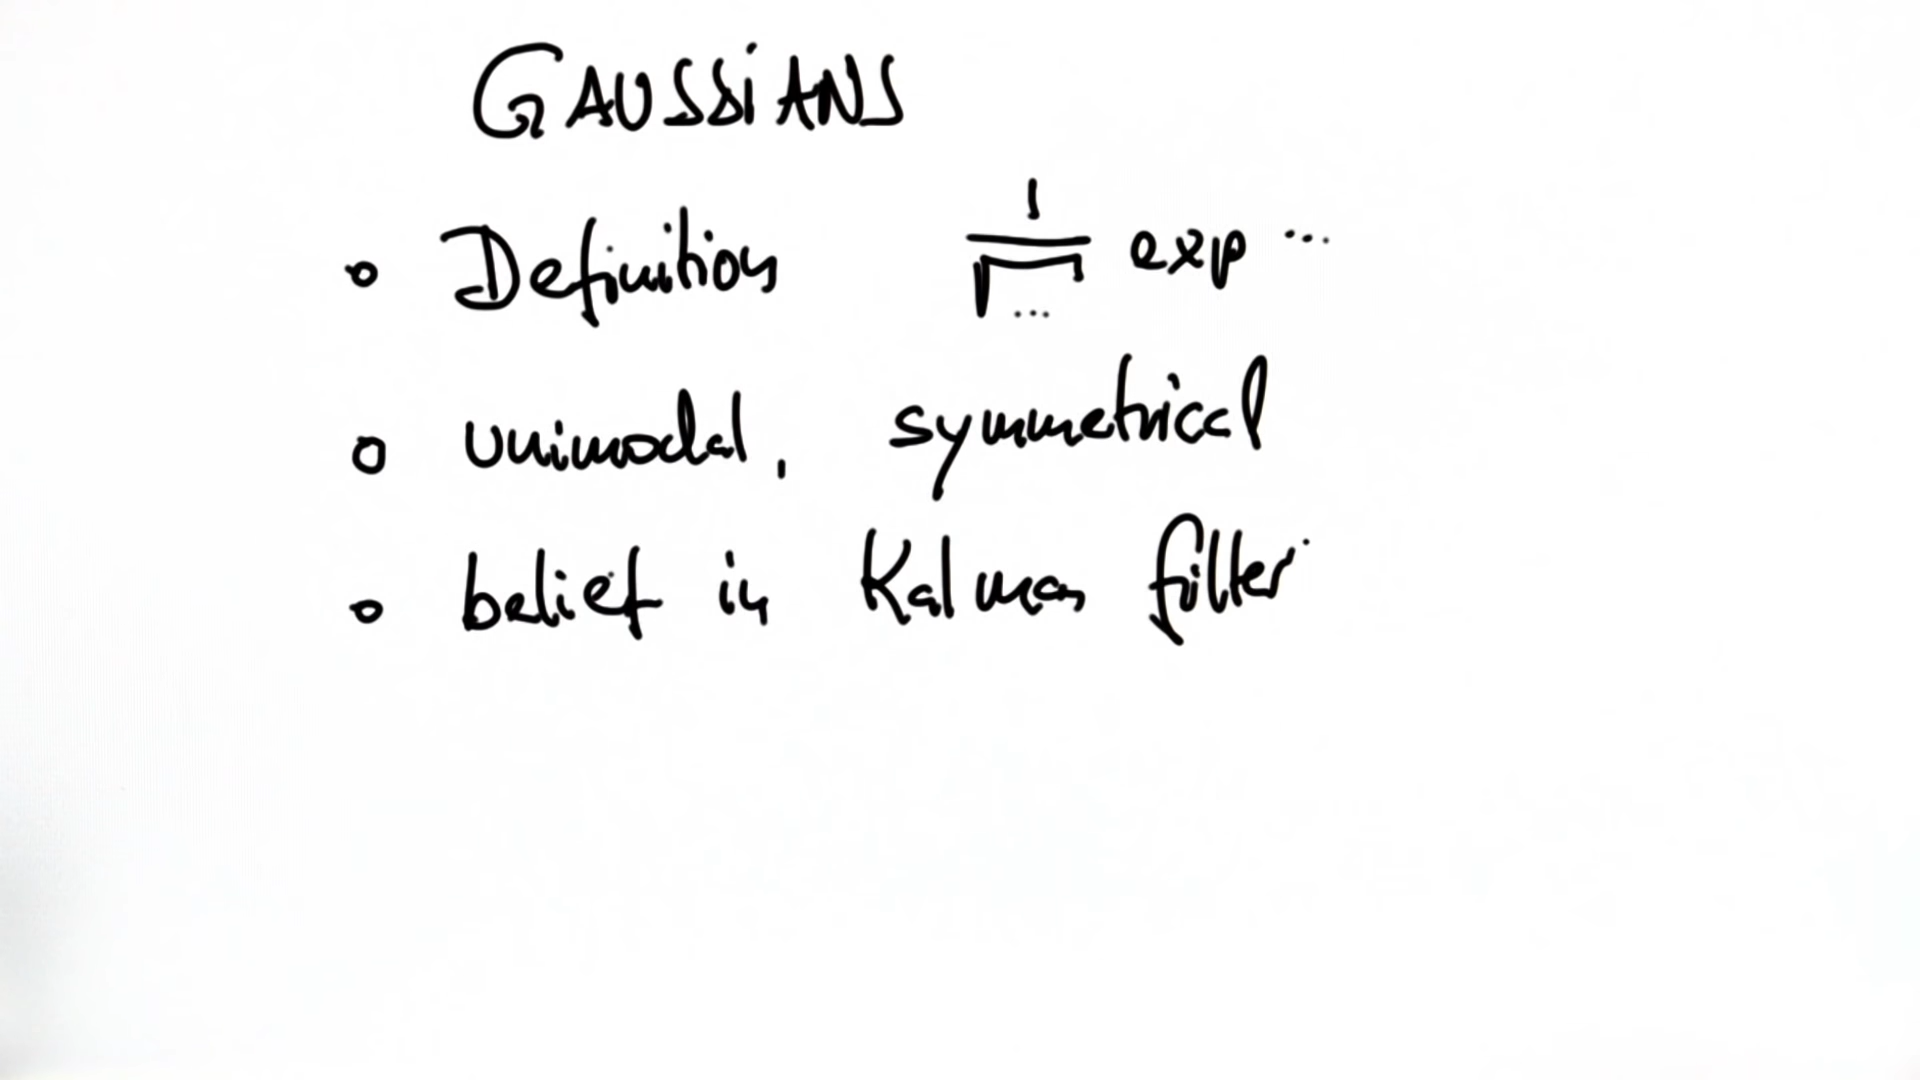 GAUSSiANS
o Definition 1/√... exp ...
o unimodal, symmetrical
o belief in Kalman filter